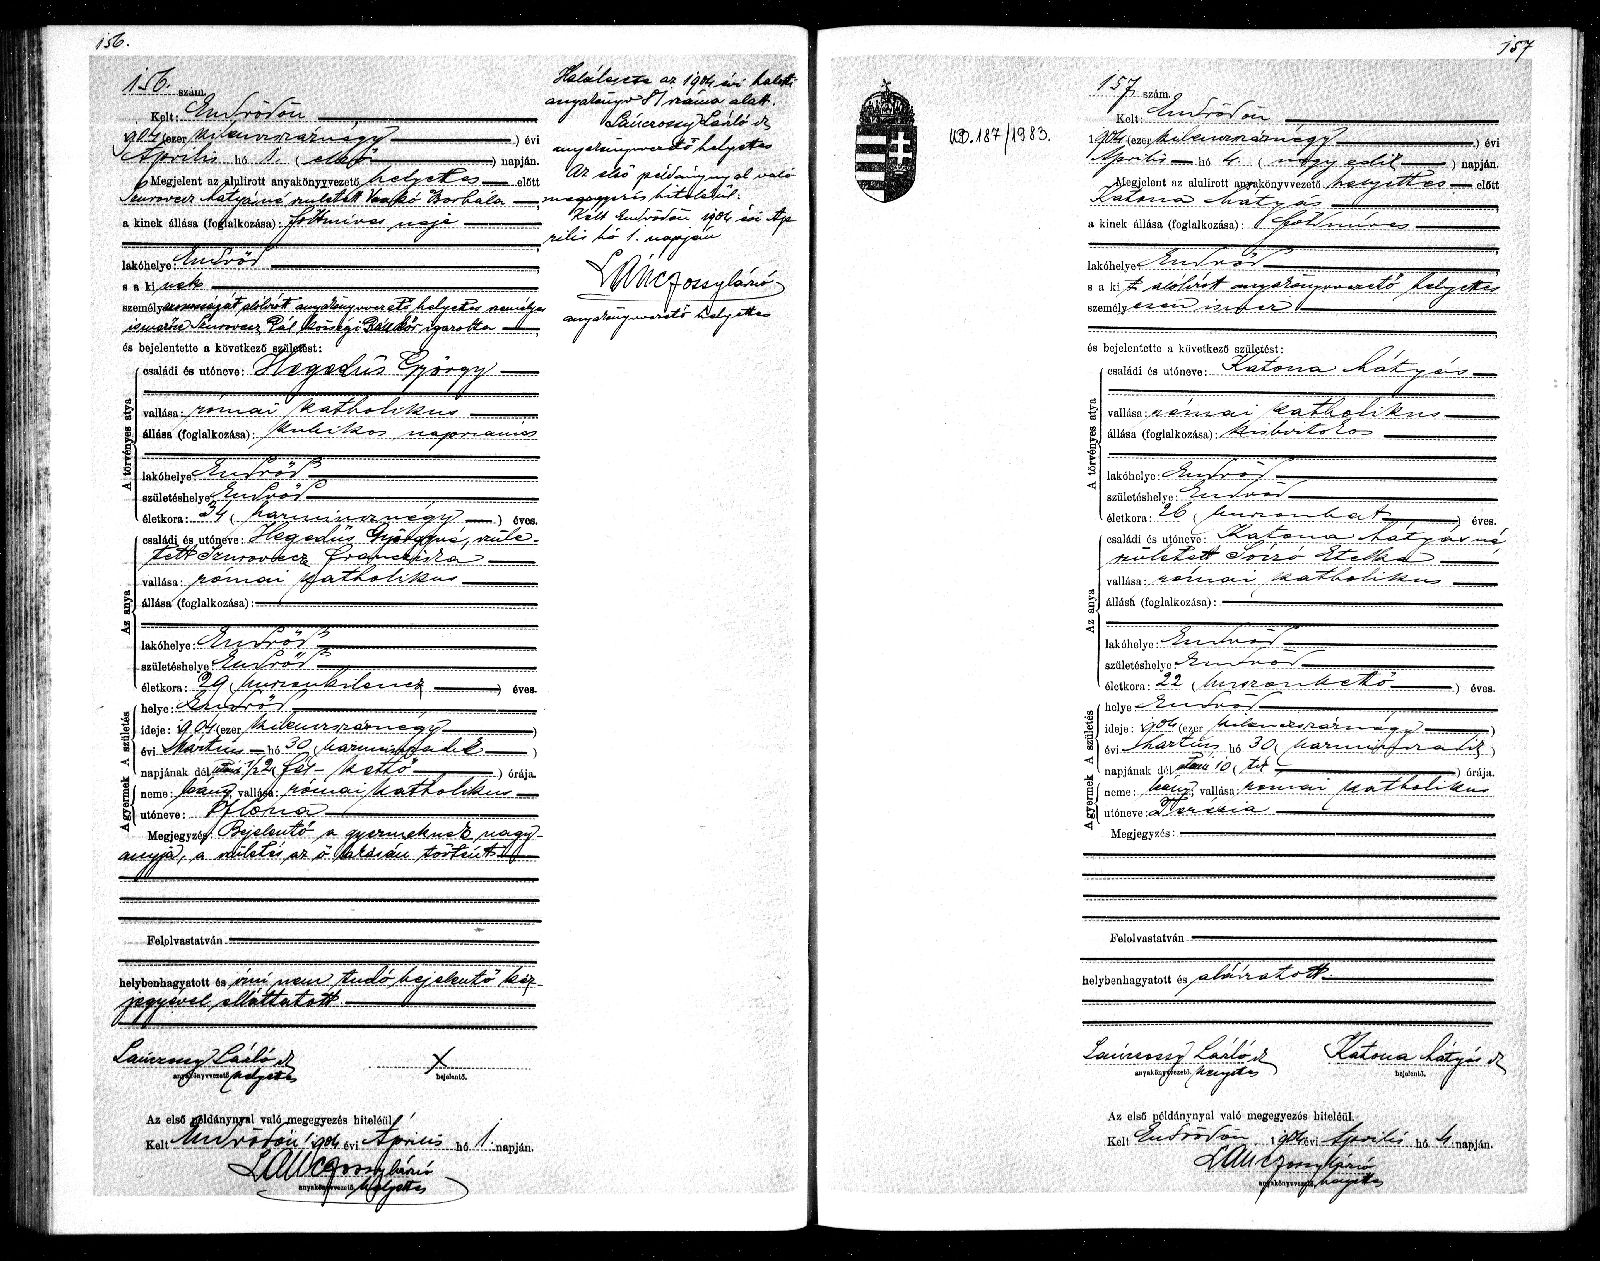 156.
156. szám.
Kelt: Endrődön
1904 (ezer kilencszáznégy) évi
Április hó 1. (első) napján.
Megjelent az alulirott anyakönyvvezető helyettes előtt
Szurovecz Mátyásné született Vaskó Borbála
a kinek állása (foglalkozása): földmives neje
lakóhelye: Endrőd
s a kinek
személyazonosságát alólirott anyakönyvvezető helyettes személyes
ismerőse Szurovecz Pál községi igazolta
és bejelentette a következő születést:
A törvényes atya
családi és utóneve: Hegedűs György
vallása: római katholikus
állása (foglalkozása): kubikos napszámos
lakóhelye: Endrőd
születéshelye: Endrőd
életkora: 34 (harmincznégy) éves.
Az anya
családi és utóneve: Hegedűs Györgyné, szüle-
tett Szurovecz Francziska
vallása: római katholikus
állása (foglalkozása):
lakóhelye: Endrőd
születéshelye: Endrőd
életkora: 29 (huszonkilencz) éves.
A gyermek A születés
helye: Endrőd
ideje: 1904 (ezer kilencszáznégy)
évi Mártius hó 30 (harminczadik)
napjának dél után 1/2 2 (fél kettő) órája.
neme: leány, vallása: római katholikus
utóneve: Ilona
Megjegyzés: Bejelentő a gyermeknek nagy-
anyja, a születés az ő házán történt.
Felolvastatván
helybenhagyatott és irni nem tudó bejelentő kéz-
jegyével elláttatott
Lánczossy László
anyakönyvvezető. helyettes
X
bejelentő.
Az első példánynyal való megegyezés hiteléül.
Kelt Endrődön 1904 évi Április hó 1. napján.
Lánczossy László
anyakönyvvezető. helyettes
Halálesete az 1904 évi halotti
anyakönyv 81 száma alatt.
Lánczossy László
anyakönyvvezető helyettes
Az első példánynyal való
megegyezés hiteléül.
Kelt Endrődön 1904 évi Áp
rilis hó 1. napján
Lánczossy László
anyakönyvvezető helyettes
157
UD. 187/1983.
157 szám.
Kelt: Endrődön
1904 (ezer kilencszáznégy) évi
Április hó 4. (negyedik) napján.
Megjelent az alulirott anyakönyvvezető helyettes előtt
Katona Mátyás
a kinek állása (foglalkozása): földmives
lakóhelye: Endrőd
s a kit alólirott anyakönyvvezető helyettes
személyesen ismer
és bejelentette a következő születést:
A törvényes atya
családi és utóneve: Katona Mátyás
vallása: római katholikus
állása (foglalkozása):
lakóhelye: Endrőd
születéshelye: Endrőd
életkora: 26 (huszonhat) éves.
Az anya
családi és utóneve: Katona Mátyásné
született Etelka
vallása: római katholikus
állása (foglalkozása):
lakóhelye: Endrőd
születéshelye: Endrőd
életkora: 22 (huszonkettő) éves.
A gyermek A születés
helye: Endrőd
ideje: 1904 (ezer kilencszáznégy)
évi Martius hó 30 (harminczadik)
napjának dél után 10 (tiz) órája.
neme: leány, vallása: római katholikus
utóneve: Terézia
Megjegyzés:
Felolvastatván
helybenhagyatott és aláiratott.
Lánczossy László
anyakönyvvezető. helyettes
Katona Mátyás
bejelentő.
Az első példánynyal való megegyezés hiteléül.
Kelt Endrődön 1904 évi Április hó 4 napján.
Lánczossy László
anyakönyvvezető. helyettes